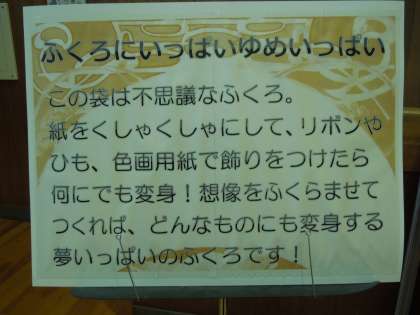 ふくろにいっぱいゆめいっぱい
この袋は不思議なふくろ。
紙をくしゃくしゃにして、リボンや
ひも、色画用紙で飾りをつけたら
何にでも変身！想像をふくらませて
つくれば、どんなものにも変身する
夢いっぱいのふくろです！